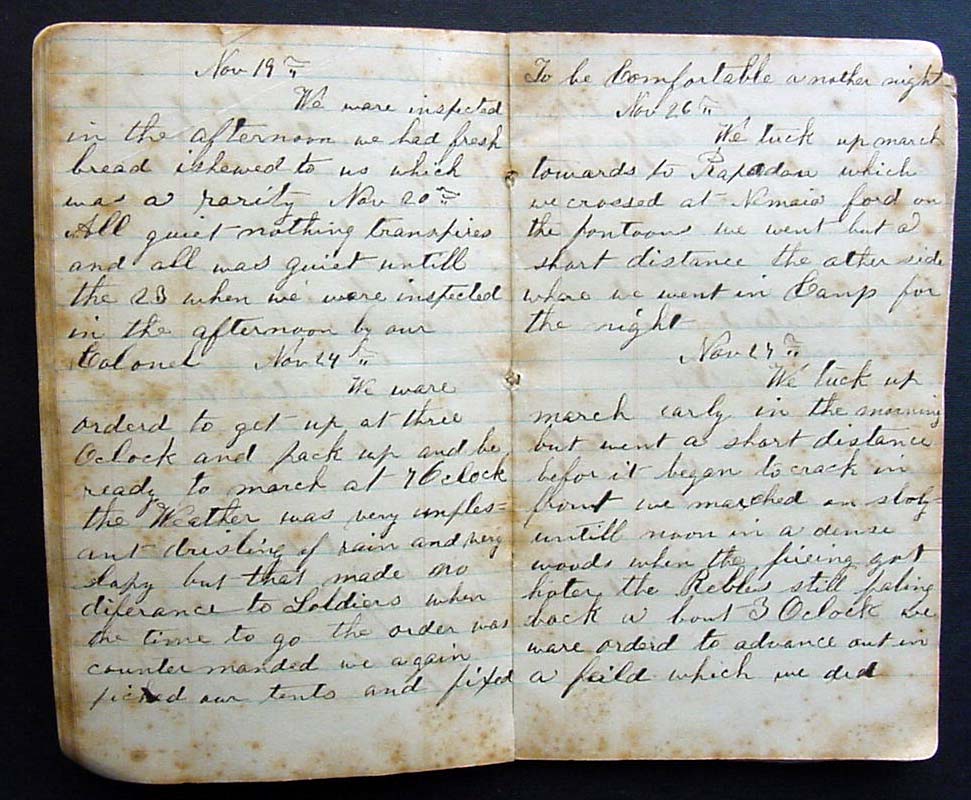 Nov 19th
We were inspected
in the afternoon we had fresh
bread ishewed to us which
was a rarity Nov 20th
All quiet nothing transpires
and all was quiet untill
the 23 when we were inspected
in the afternoon by our
Colonel Nov 24th
We ware
orderd to get up at three
Oclock and pack up and be
ready to march at 7 Oclock
the Weather was very unples=
ant drisling of rain and very
slopy but that made no
diferance to Soldiers when
the time to go the order was
counter manded we again
piched our tents and fixed
To be Comfortable a nother night
Nov 26th
We tuck up march
towards to Rapadan which
we crossed at ford on
the pontoons we went but a
short distance the other side
where we went in Camp for
the night
Nov 27th
We tuck up
march early in the morning
but went a short distance
befor it began to crack in
front we marched on sloly=
untill noon in a dense
woods when the fireing got
hoter the Rebbles still faling
back a bout 3 Oclock we
ware orderd to advance out in
a feild which we did